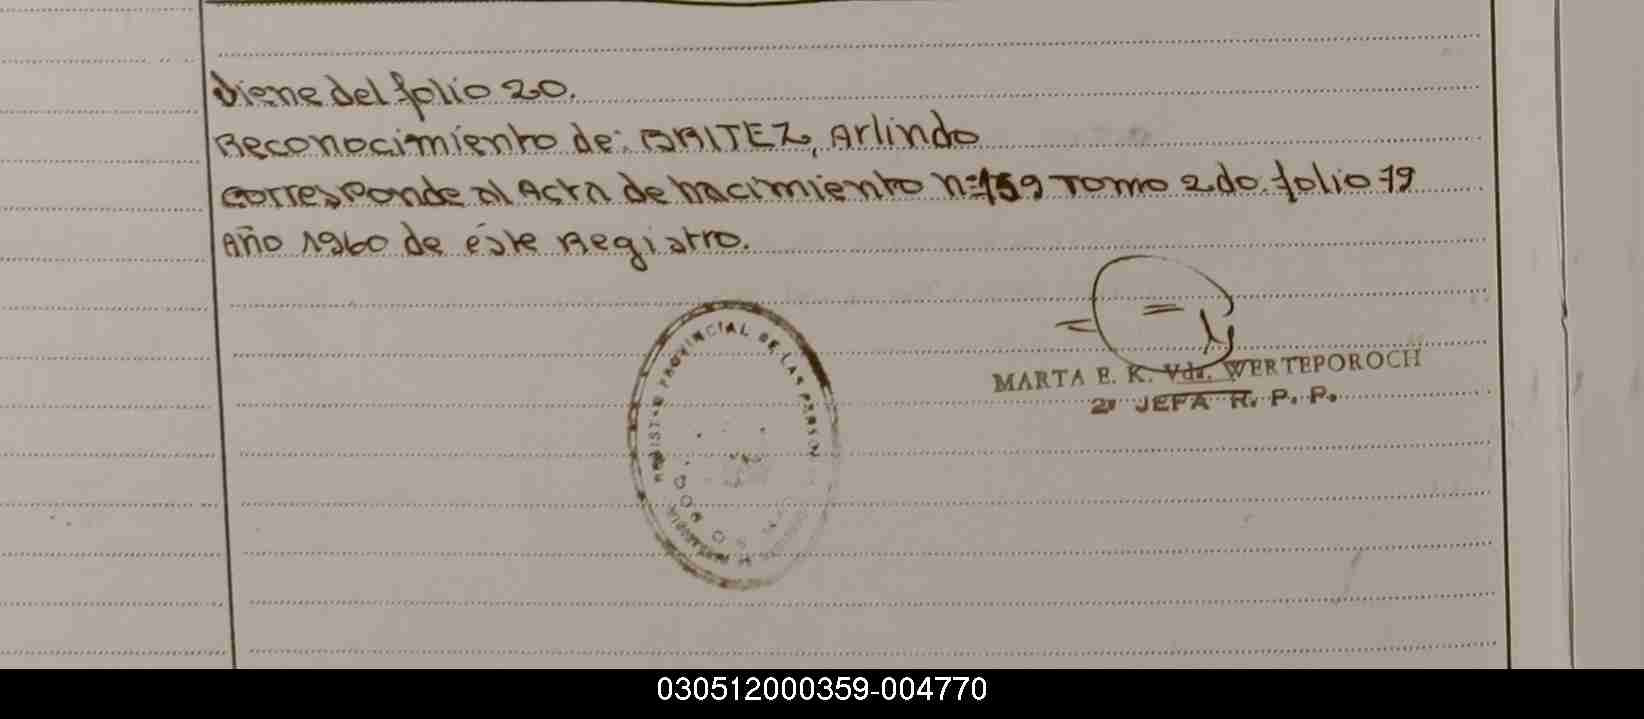 Viene del folio 20.
Reconocimiento de: BRITEZ, Arlindo
corresponde al Acta de nacimiento nº 159 Tomo 2do. folio 19
Año 1960 de éste Registro.
REGISTRO PROVINCIAL DE LAS PERSON
MARTA E. K. Vda. WERTEPOROCH
2ª JEFA R. P. P.
030512000359-004770